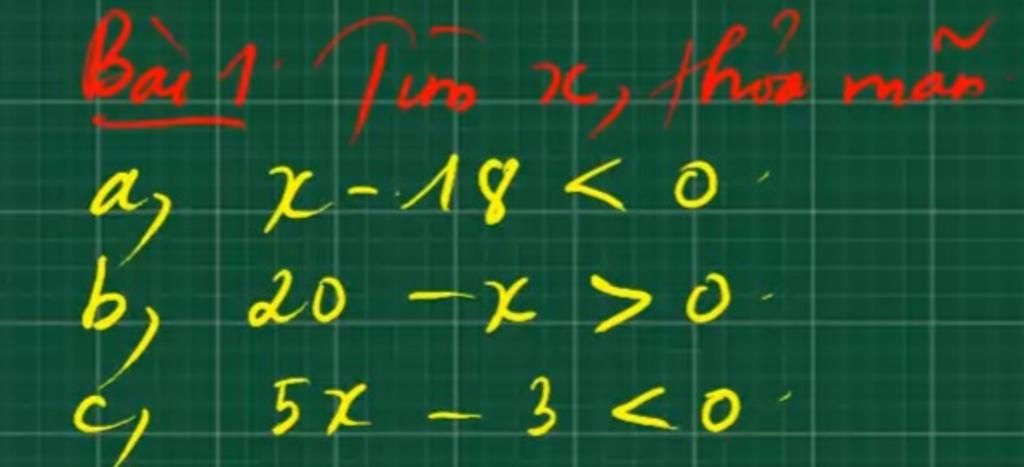 Bài 1. Tìm x, thỏa mãn
a, x - 18 < 0
b, 20 - x > 0
c, 5x - 3 < 0